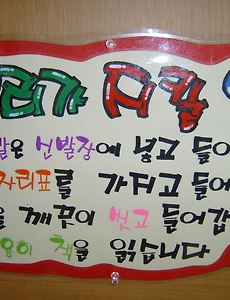 리가 지킬
발은 신발장에 넣고 들어
자리표를 가지고 들어
을 깨끗이 씻고 들어갑
용히 책을 읽습니다